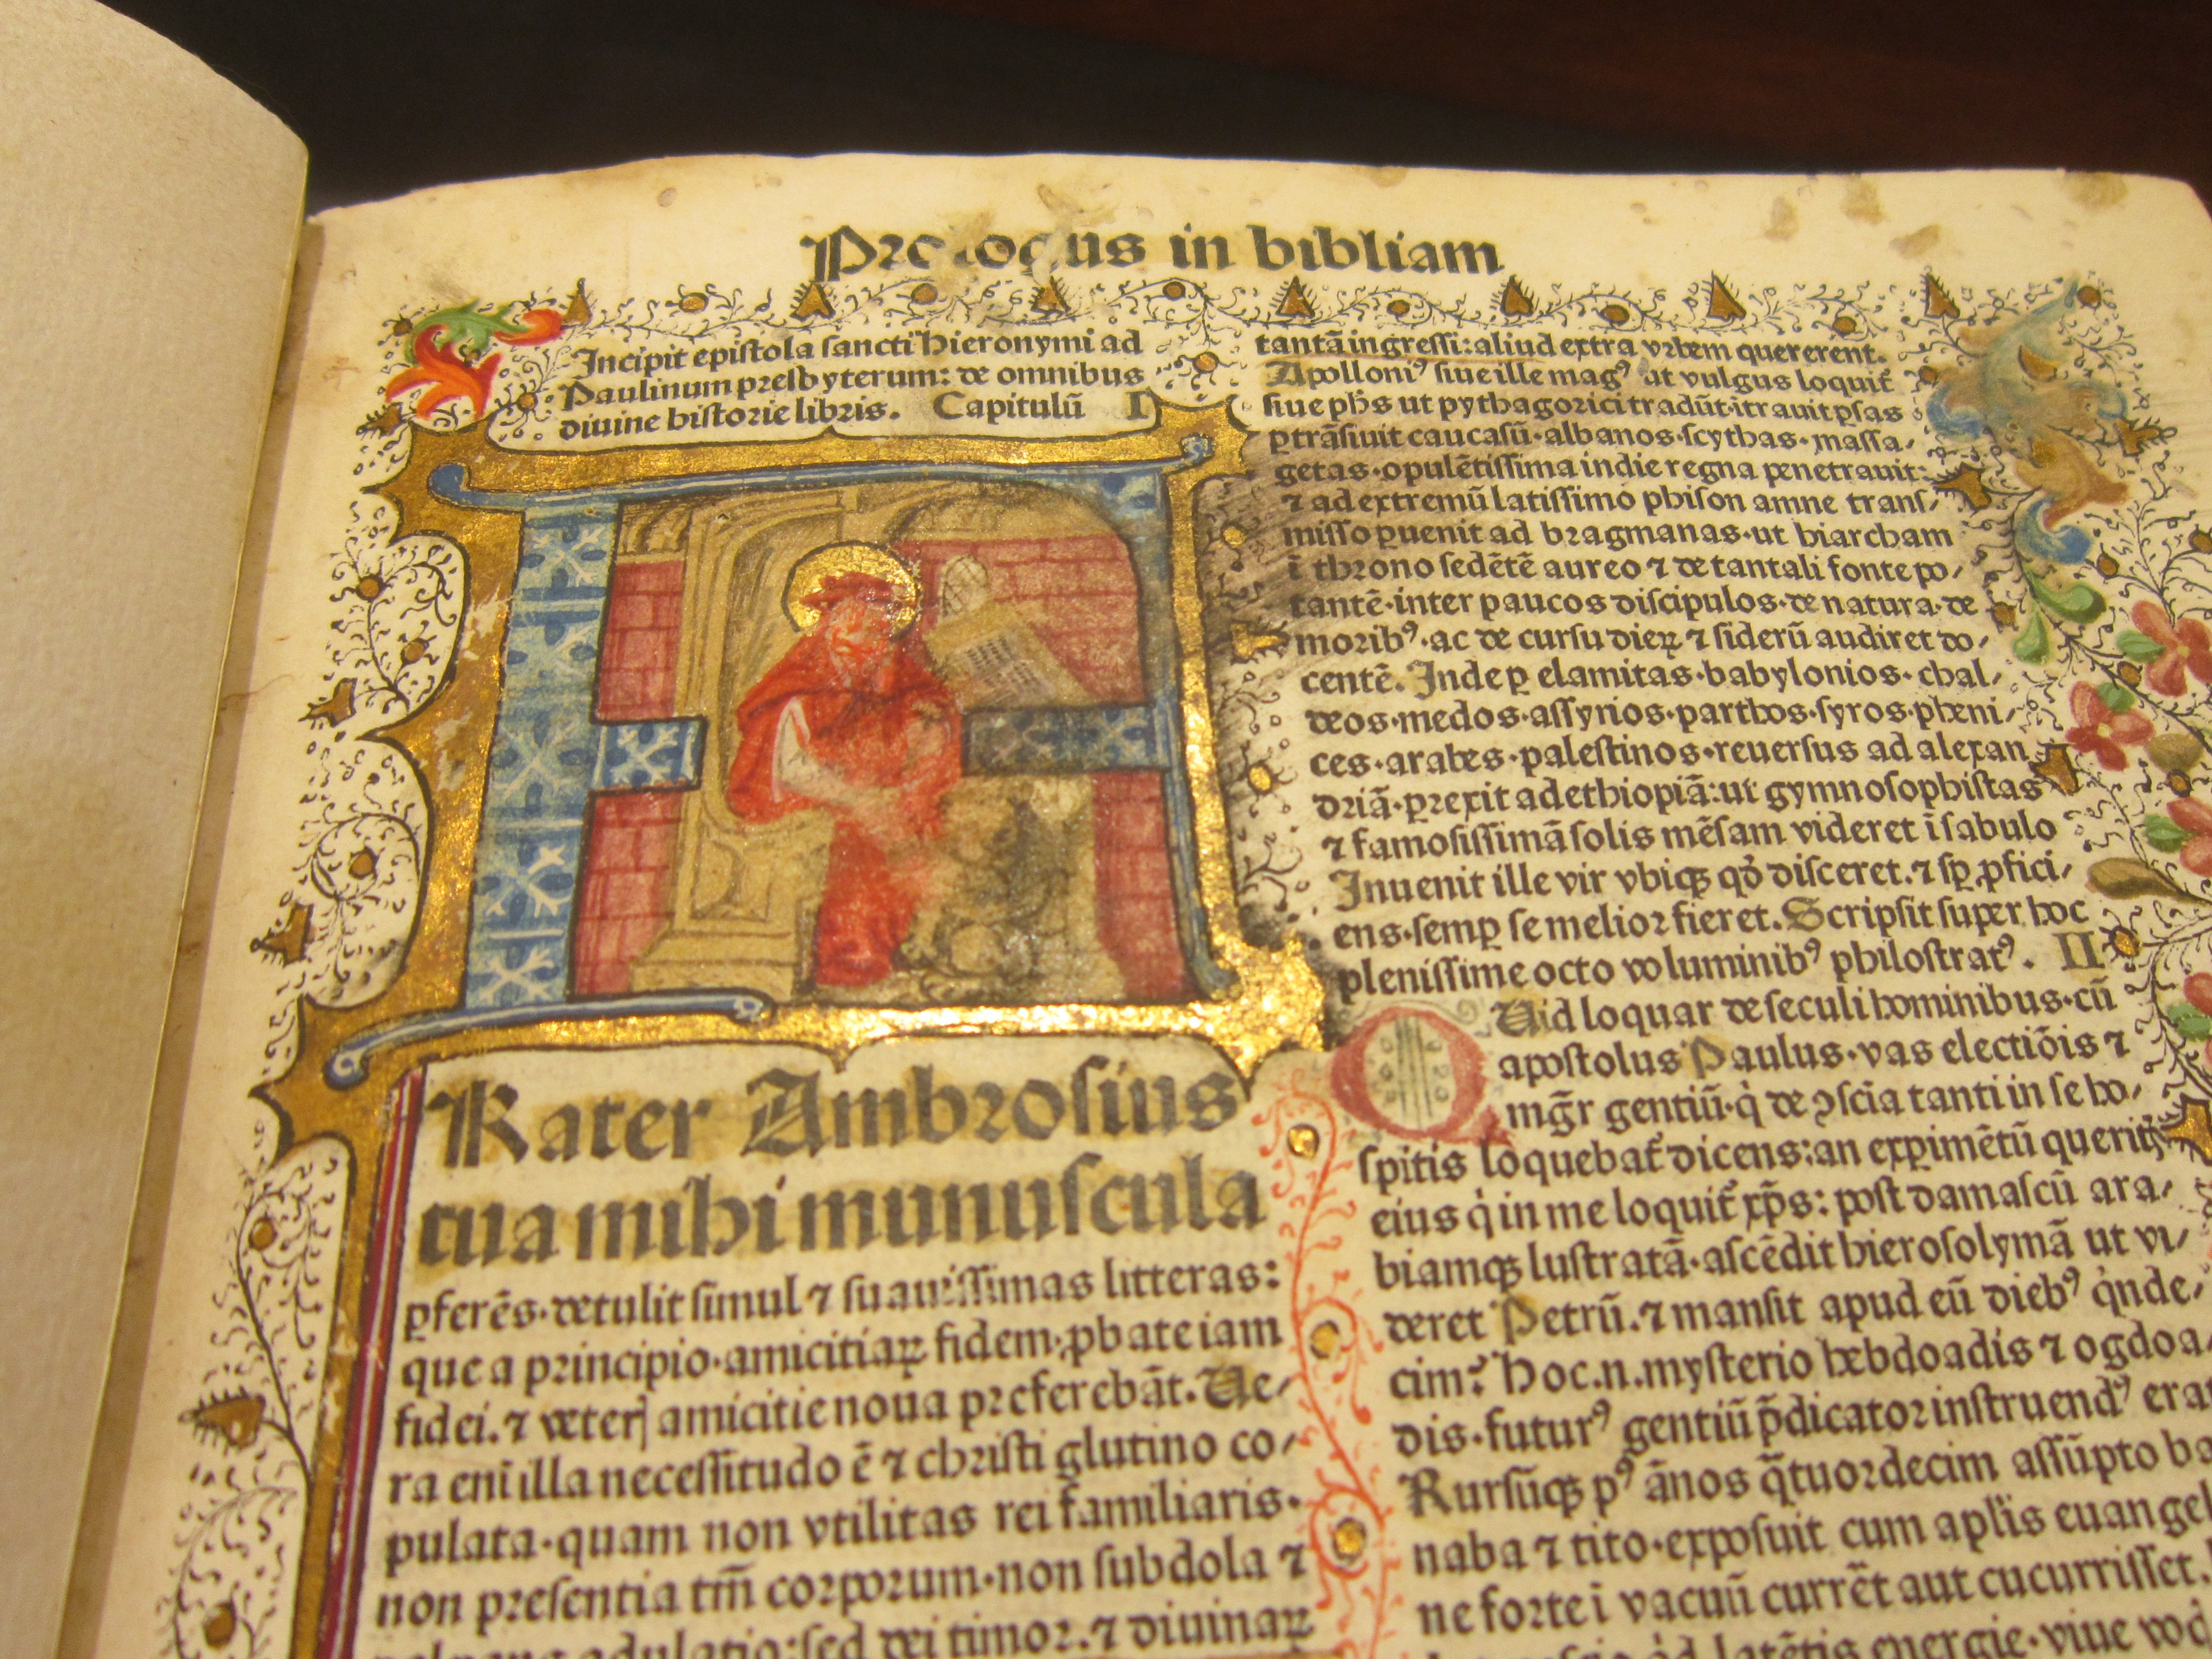 Prologus in bibliam
Incipit epistola sancti Hieronymi ad
Paulinum presbyterum: de omnibus
diuine historie libris. Capitulū I
F
Rater Ambrosius
tua mihi munuscula
ꝑferēs·detulit simul ⁊ suauissimas litteras:
que a principio·amicitiaꝝ fidem·ꝓbate iam
fidei.⁊ veterꝭ amicitie noua preferebāt. Ue⸗
ra enī illa necessitudo ē ⁊ christi glutino co⸗
pulata·quam non vtilitas rei familiaris·
non presentia tm̄ corporum·non subdola ⁊
adulatio:sed dei timor.⁊ diuinaꝝ
tantā ingressi:aliud extra vrbem quererent.
Apolloniꝰ siue ille magꝰ ut vulgus loquit̄
siue ph̄s ut pythagorici tradūt·ītrauit ꝑsas
ꝑtrāsiuit caucasū·albanos·scythas·massa⸗
getas·opulētissima indie regna penetrauit:
⁊ ad extremū latissimo phison amne trans⸗
misso ꝑuenit ad bragmanas·ut hiarcham
ī throno sedētē aureo ⁊ de tantali fonte po⸗
tantē·inter paucos discipulos·de natura·de
moribꝰ·ac de cursu dieꝝ ⁊ siderū audiret do⸗
centē. Inde ꝑ elamitas·babylonios·chal⸗
deos·medos·assyrios·parthos·syros·pheni⸗
ces·arabes·palestinos·reuersus ad alexan
driā·ꝑrexit ad ethiopiā:ut gymnosophistas
⁊ famosissimā solis mēsam videret ī sabulo
Inuenit ille vir vbiqꝫ qd̓ disceret.⁊ sꝑ ꝓfici⸗
ens·semꝑ se melior fieret. Scripsit super hoc
plenissime octo voluminibꝰ philostratꝰ. II
QUid loquar de seculi hominibus·cū
apostolus Paulus·vas electiōis ⁊
mḡr gentiū·q̇ de ꝯscia tanti in se ho⸗
spitis loquebat̄ dicens:an exꝑimētū queritꝭ
eius q̇ in me loquit̄ xp̄s: post damascū ara⸗
biamqꝫ lustratā·ascēdit hierosolymā ut vi⸗
deret Petrū.⁊ mansit apud eū diebꝰ q̇nde⸗
cim? Hoc.n.mysterio hebdoadis ⁊ ogdoa⸗
dis·futurꝰ gentiū p̄dicator instruendꝰ erat
Rursūqꝫ pꝰ ānos q̄tuordecim assūpto ba
naba ⁊ tito·exposuit cum apl̄is euangel
ne forte ī vacuū currēt aut cucurrisset.
latētis energie·viue voc̄